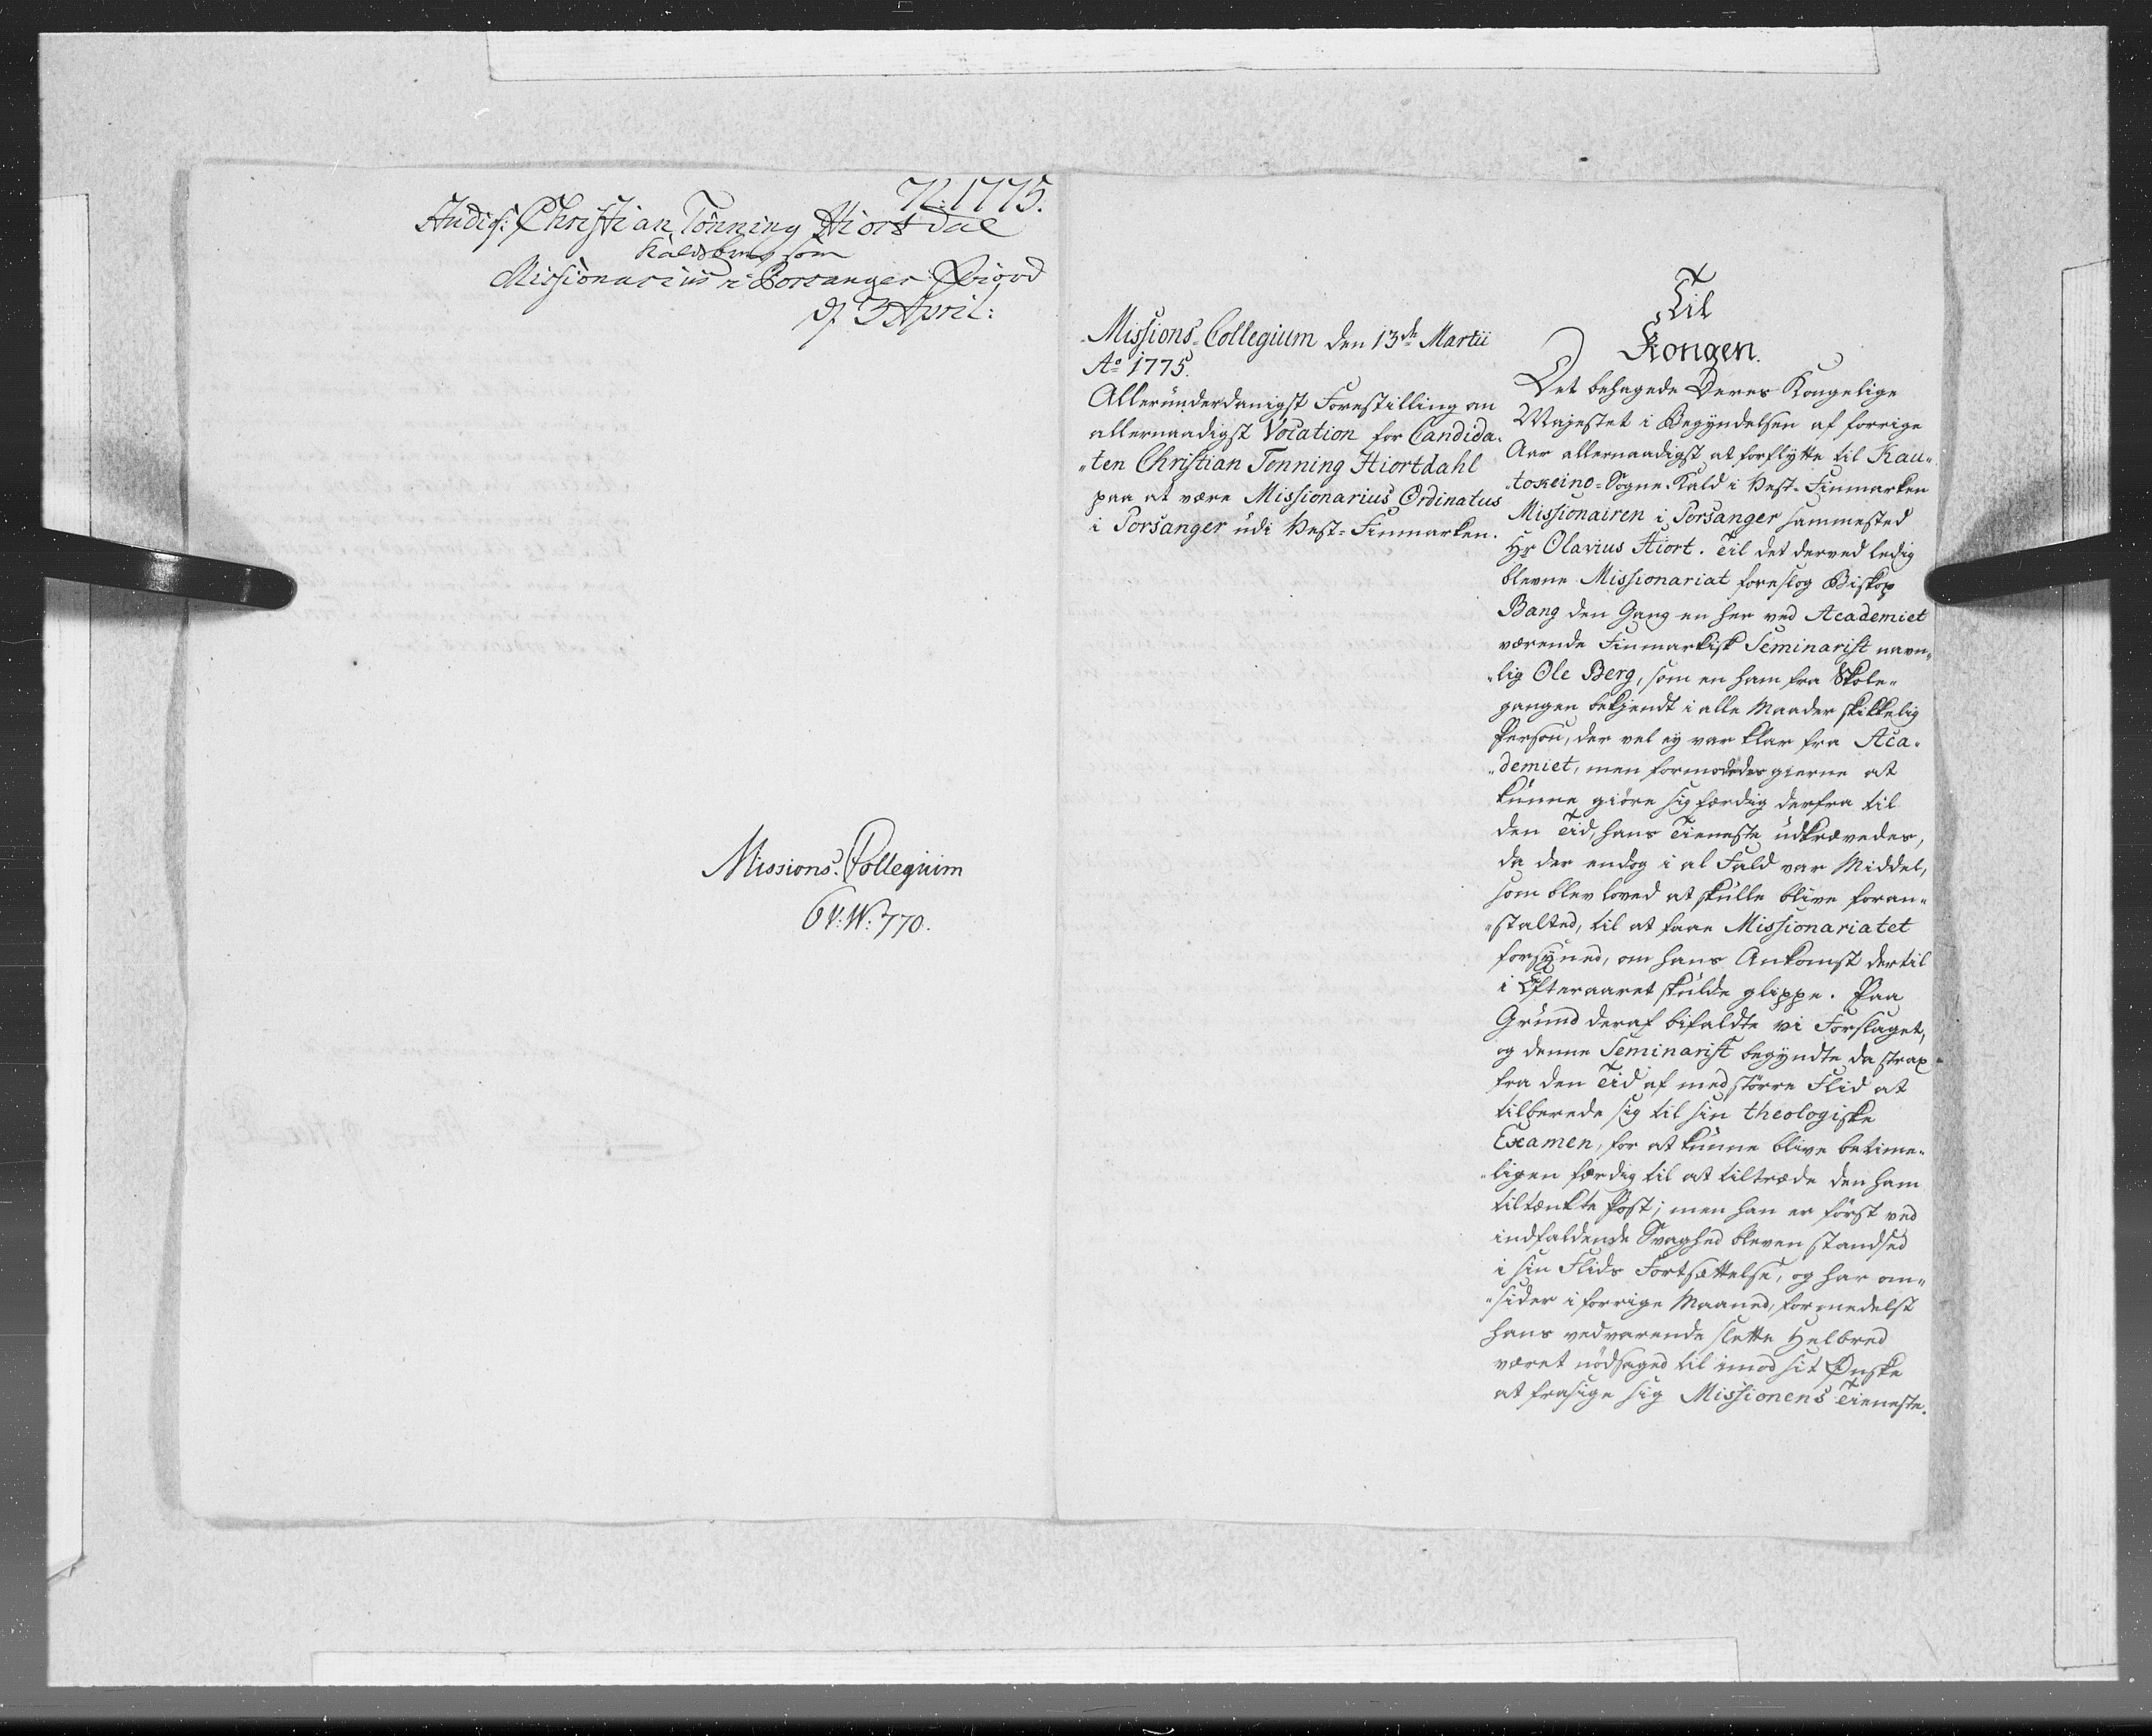 71. 1775.
Studios: Christian Tönning Hiortdal
Kaldsbrev som
Missionarius i Porsanger Fiord
d. 3 April:
Missions-Collegium
6 V: N: 770.
Missions-Collegium den 13de Martii
Ao 1775.
Allerunderdanigst Forestilling om
allernaadigst Vocation for Candida-
-ten Christian Tonning Hiortdahl
paa at være Missionarius Ordinatus
i Porsanger udi Vest-Finmarken.
Til
Kongen.
Det behagede Deres Kongelige
Majestet i Begyndelsen af forrige
Aar allernaadigst at forflytte til Kau-
-tokeino-Sogne-Kald i Vest-Finmarken
Missionairen i Porsanger sammested
Hr Olavius Hiort. Til det derved ledig
blevne Missionariat foreslog Biskop
Bang den Gang en her ved Academiet
værende Finmarkisk Seminarist navn-
-lig Ole Berg, som en ham fra Skole-
gangen bekjendt i alle Maader skikkelig
Person, der vel ey var klar fra Aca-
-demiet, men formodedes gierne at
kunne giöre sig færdig derfra til
den Tid, hans Tieneste udkrævedes,
da der endog i al Fald var Middel,
som blev loved at skulle blive foran-
-stalted, til at faae Missionariatet
forsyned, om hans Ankomst dertil
i Efteraaret skulde glippe. Paa
Grund deraf bifaldte vi Forslaget,
og denne Seminarist begyndte da strax
fra den Tid af med större Flid at
tilberede sig til sin theologiske
Examen, for at kunne blive betime-
-ligen færdig til at tiltræde den ham
tiltænkte Post; men han er först ved
indfaldende Svaghed bleven standsed
i sin Flids Fortsættelse, og har om-
-sider i forrige Maaned, formedelst
hans vedvarende slette Helbred
været nödsaged til imod sit Ønske
at frasige sig Missionens Tieneste.